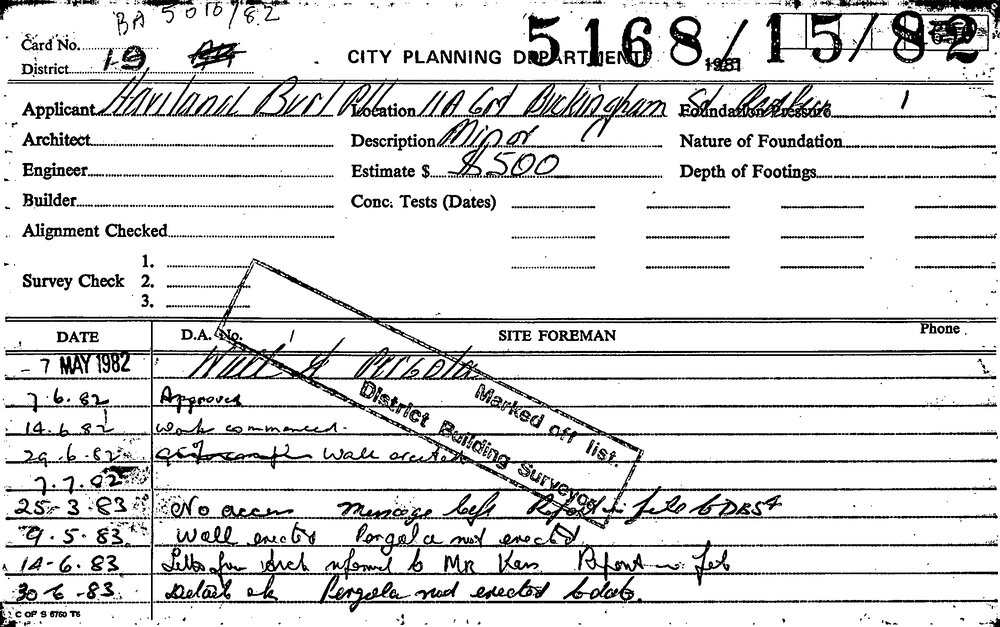 BA 5010/82
Card No.
5168/15/82
District 19
CITY PLANNING DEPARTMENT 1981
Applicant Haviland Burl Location 11A Buckingham St Foundation Pressure
Architect Description Minor Nature of Foundation
Engineer Estimate $ $500 Depth of Footings
Builder Conc. Tests (Dates)
Alignment Checked
Survey Check 1.
2.
3.
DATE D.A. No. SITE FOREMAN Phone
- 7 MAY 1982 Wall & Pergola
7.6.82 Approved
14.6.82 Work commenced.
29.6.82 Wall erected
7.7.82
Marked off list.
District Building Surveyor
25-3-83 No access message left Report in file to DBS
9.5.83. Wall erected Pergola not erected
14-6.83 Letter from Arch to Mr Report in
30-6-83 Details ok Pergola not erected to date.
C OF S 6760 T6